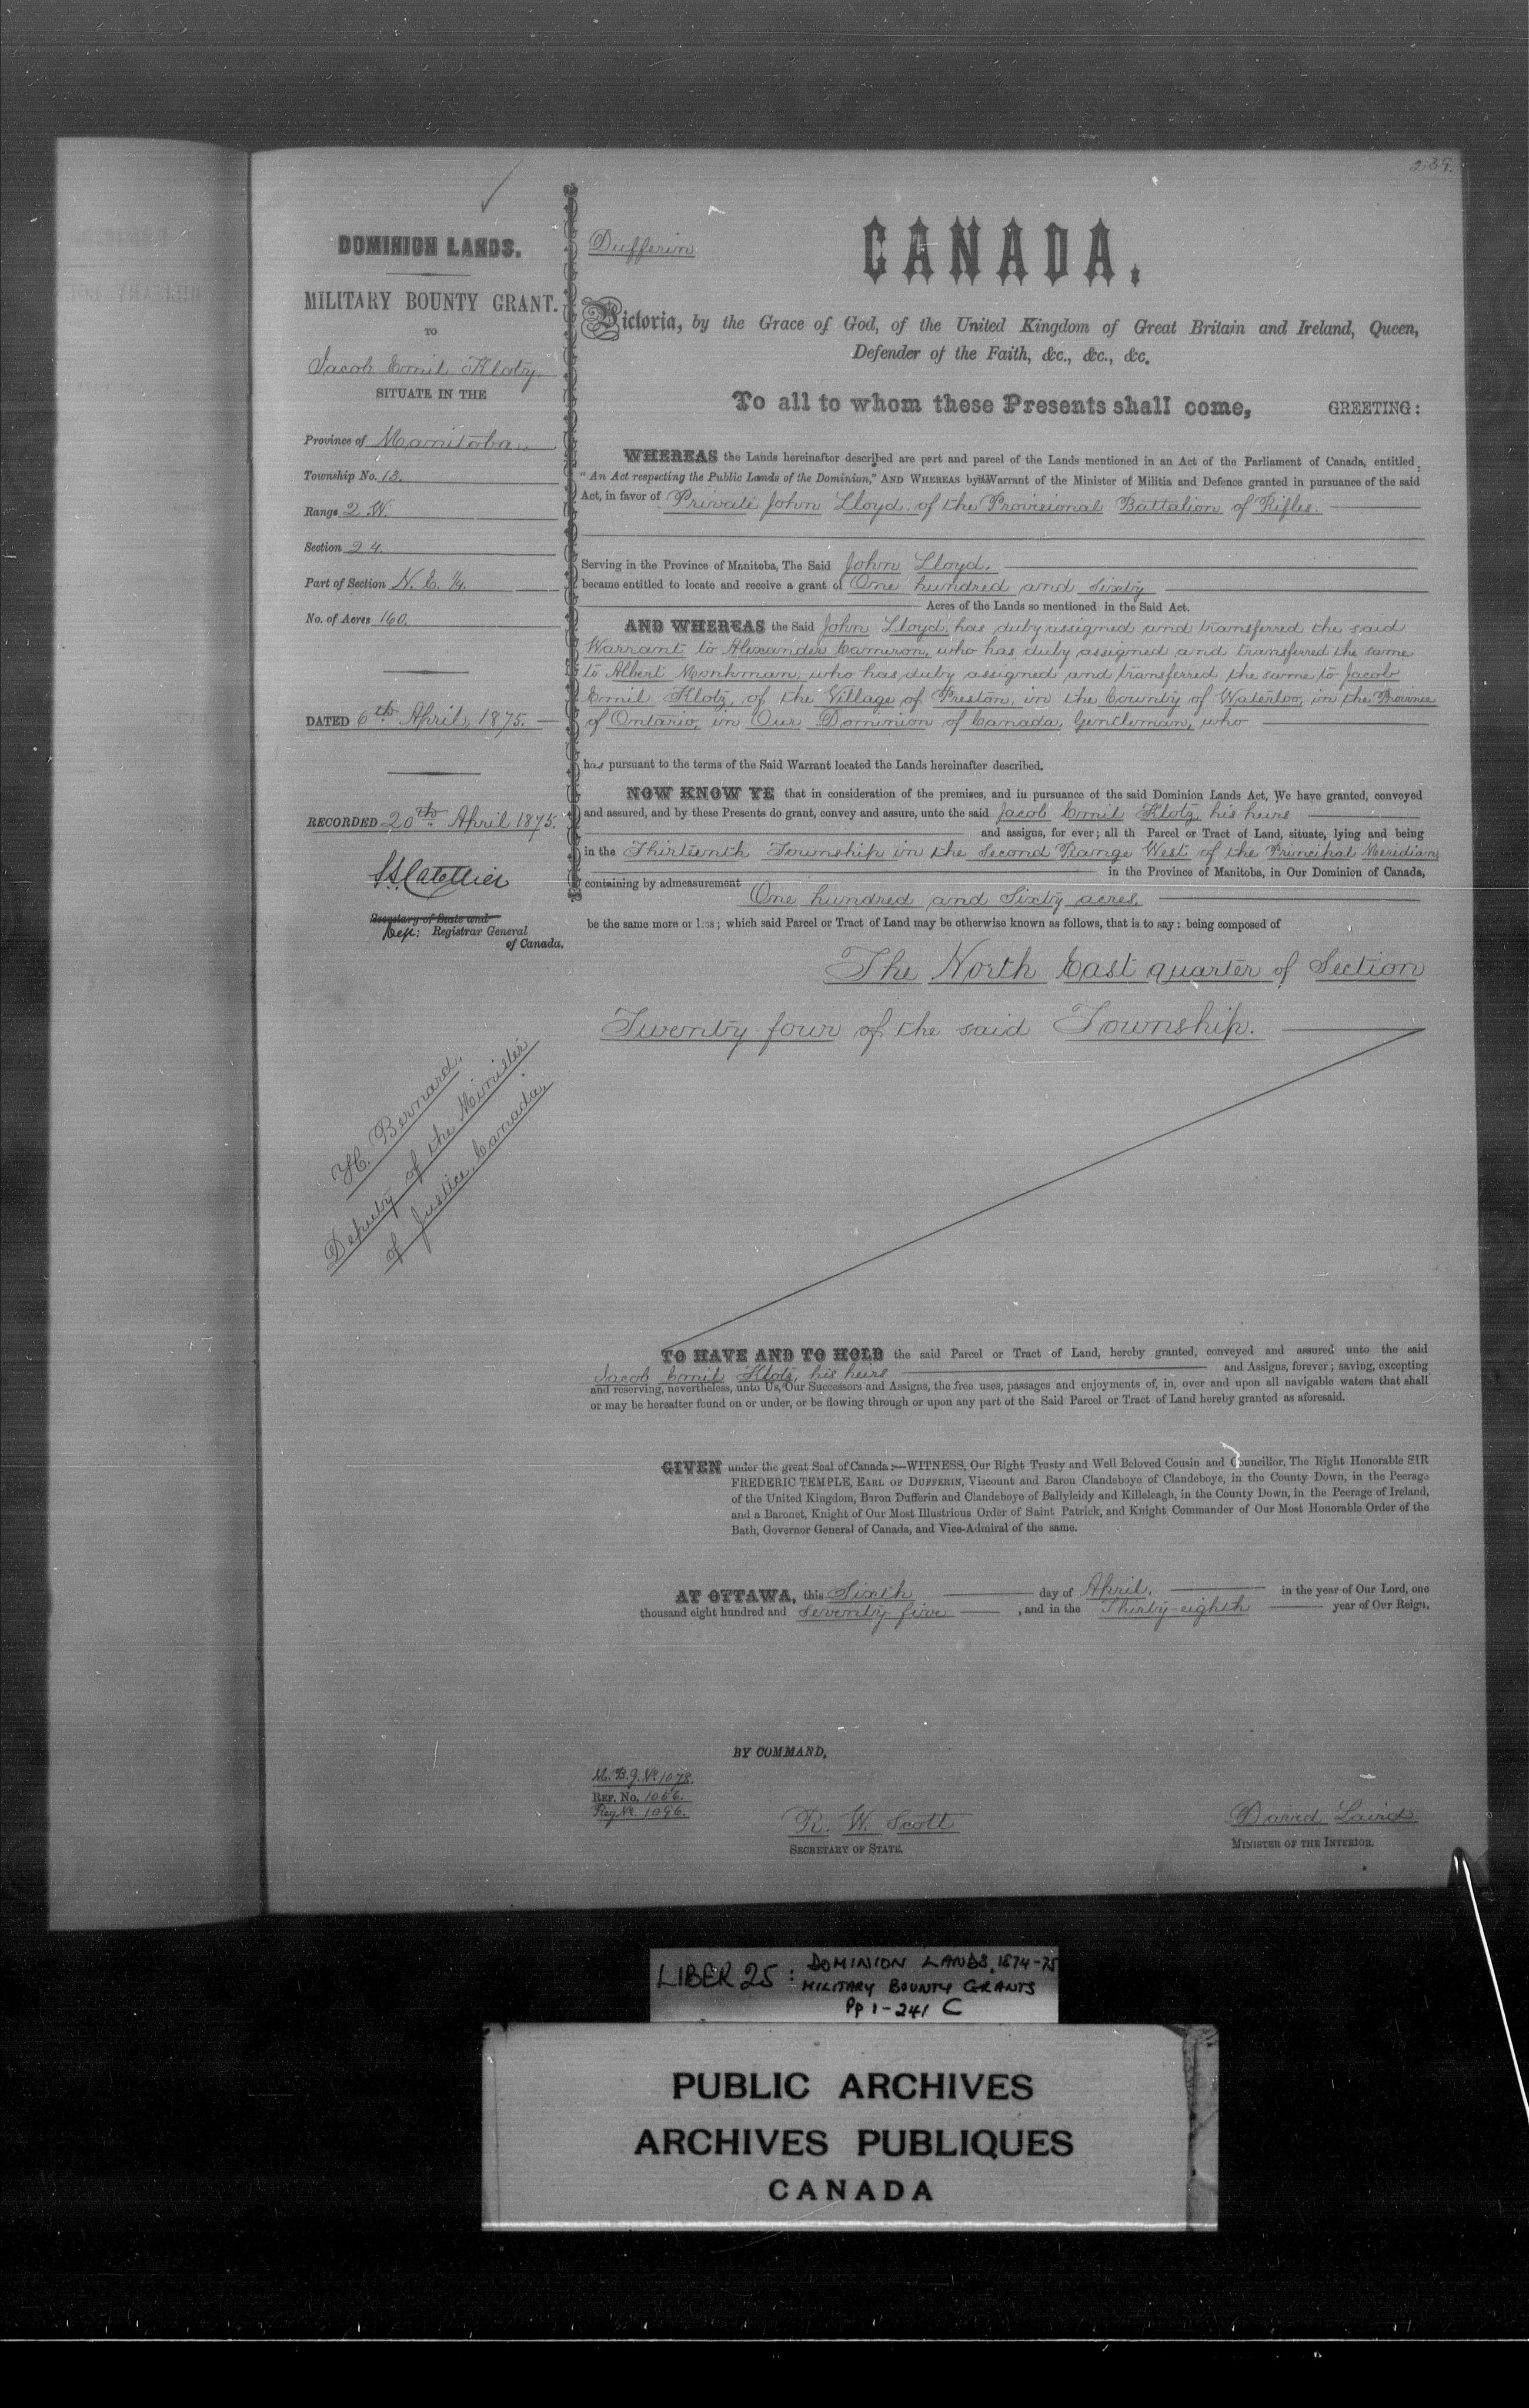 239.
DOMINION LANDS.
MILITARY BOUNTY GRANT.
TO
Jacob Emil Klotz
SITUATE IN THE
Province of Manitoba,
Township No. 13.
Range 2 W.
Section 24.
Part of Section N. E. 1/4.
No. of Acres 160.
DATED 6th April, 1875.
RECORDED 20th April 1875.
Secretary of State and
Dep: Registrar General
of Canada.
H. Bernard,
Deputy of the Minister
of Justice, Canada,
Dufferin
CANADA.
Victoria, by the Grace of God, of the United Kingdom of Great Britain and Ireland, Queen,
Defender of the Faith, &c., &c., &c.
To all to whom these Presents shall come, GREETING:
WHEREAS the Lands hereinafter described are part and parcel of the Lands mentioned in an Act of the Parliament of Canada, entitled
"An Act respecting the Public Lands of the Dominion," AND WHEREAS by Warrant of the Minister of Militia and Defence granted in pursuance of the said
Act, in favor of Private John Lloyd, of the Provisional Battalion of Rifles.
Serving in the Province of Manitoba, The Said John Lloyd,
became entitled to locate and receive a grant of One hundred and Sixty
Acres of the Lands so mentioned in the Said Act.
AND WHEREAS the Said John Lloyd, has duly assigned and transferred the said
Warrant to Alexander Cameron, who has duly assigned and transferred the same
to Albert Monkman, who has duly assigned and transferred the same to Jacob
Emil Klotz, of the Village of Preston, in the County of Waterloo, in the Province
of Ontario, in Our Dominion of Canada, Gentleman, who
has pursuant to the terms of the Said Warrant located the Lands hereinafter described.
NOW KNOW YE that in consideration of the premises, and in pursuance of the said Dominion Lands Act, We have granted, conveyed
and assured, and by these Presents do grant, convey and assure, unto the said Jacob Emil Klotz, his heirs
and assigns, for ever; all th Parcel or Tract of Land, situate, lying and being
in the Thirteenth Township in the Second Range West of the Principal Meridian,
in the Province of Manitoba, in Our Dominion of Canada,
containing by admeasurement One hundred and Sixty acres,
be the same more or less; which said Parcel or Tract of Land may be otherwise known as follows, that is to say: being composed of
The North East quarter of Section
Twenty four of the said Township.
TO HAVE AND TO HOLD the said Parcel or Tract of Land, hereby granted, conveyed and assured unto the said
Jacob Emil Klotz, his heirs and Assigns, forever; saving, excepting
and reserving, nevertheless, unto Us, Our Successors and Assigns, the free uses, passages and enjoyments of, in, over and upon all navigable waters that shall
or may be hereafter found on or under, or be flowing through or upon any part of the Said Parcel or Tract of Land hereby granted as aforesaid.
GIVEN under the great Seal of Canada:—WITNESS, Our Right Trusty and Well Beloved Cousin and Councillor, The Right Honorable SIR
FREDERIC TEMPLE, EARL OF DUFFERIN, Viscount and Baron Clandeboye of Clandeboye, in the County Down, in the Peerage
of the United Kingdom, Baron Dufferin and Clandeboye of Ballyleidy and Killeleagh, in the County Down, in the Peerage of Ireland,
and a Baronet, Knight of Our Most Illustrious Order of Saint Patrick, and Knight Commander of Our Most Honorable Order of the
Bath, Governor General of Canada, and Vice-Admiral of the same.
AT OTTAWA, this Sixth day of April, in the year of Our Lord, one
thousand eight hundred and Seventy five, and in the Thirty-eighth year of Our Reign.
BY COMMAND,
M. B. G. No. 1078.
REF. No. 1056.
Reg No. 1096.
R. W. Scott
SECRETARY OF STATE.
David Laird
MINISTER OF THE INTERIOR.
LIBER 25: DOMINION LANDS, 1874-75
MILITARY BOUNTY GRANTS
Pp 1-241 C
PUBLIC ARCHIVES
ARCHIVES PUBLIQUES
CANADA